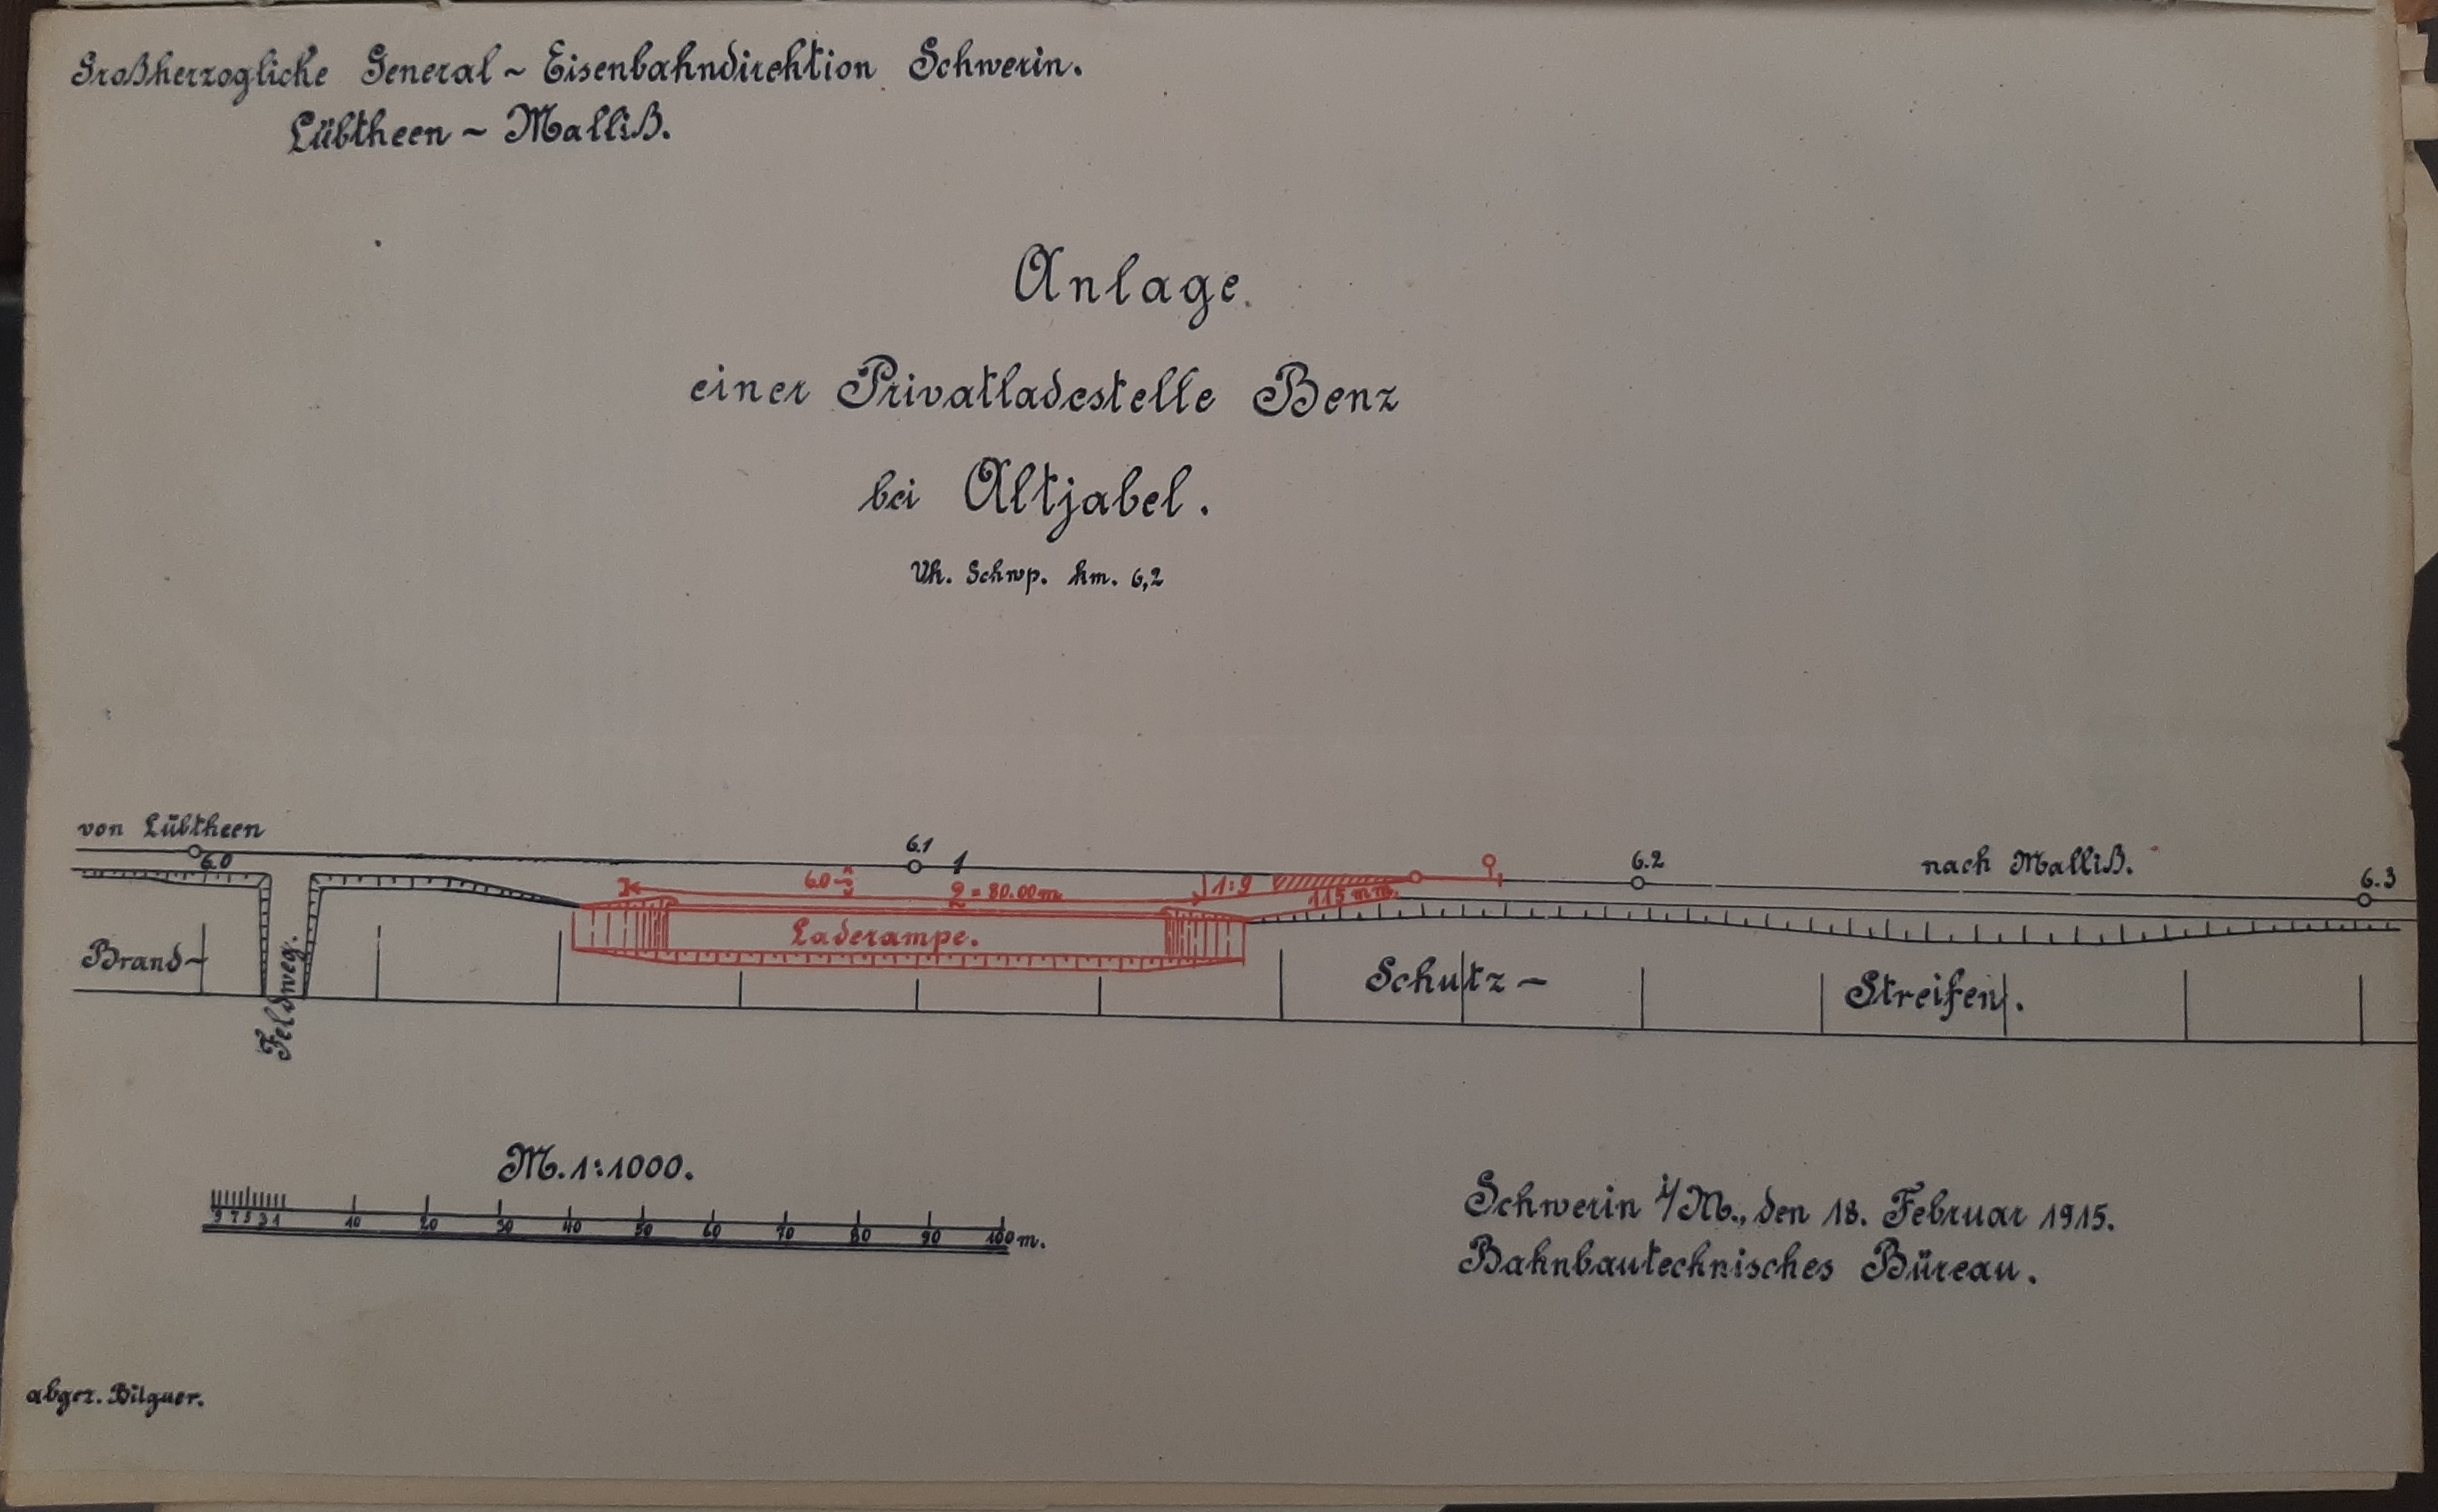 Großherzogliche General-Eisenbahndirektion Schwerin.
Lübtheen - Malliß.
Anlage
einer Privatladestelle Benz
bei Altjabel.
Vh. Schwp. km. 6,2
von Lübtheen
6.0
6.1
1
6.2
nach Malliß.
6.3
6.0
2 = 80.00 m
1:9
115 m m.
Laderampe.
Brand-
Feldweg.
Schutz-
Streifen.
M. 1:1000.
9 7 5 3 1 10 20 30 40 50 60 70 80 90 100 m.
Schwerin i/M., den 18. Februar 1915.
Bahnbautechnisches Büreau.
abgez. Bilguer.